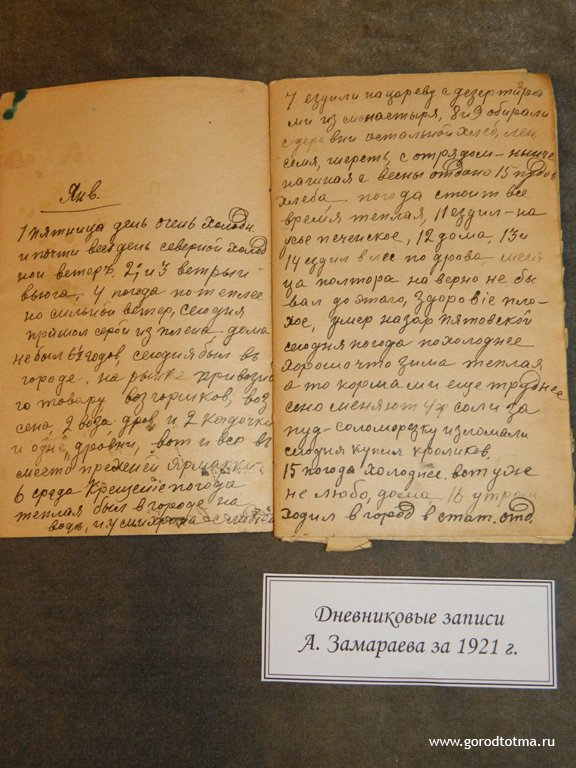 Янв.
1 пятница день очень холодн.
и почти весь день северной холод
ной ветеръ. 2, и 3 ветры и
вьюга, 4 погода потеплее
но сильной ветер, сегодня
пришол серги из плена, дома
не был 6 годов, сегодня был въ
городе, на рынке привозно
го товару воз горшков, воз
сена, 2 воза дров, и 2 кадочки
и одне дровни, вот и все въ
место прежней ярмарки
6 среда Крещение погода
теплая был в городе на
воде, и у
7 ездили на цареву с дезертира
ми из монастыря, 8 и 9 обирали
с деревни остальной хлеб, лен
семя, шерсть, с отрядом нынче
начиная с весны отдано 15 пудов
хлеба, погода стоит все
время теплая, 11 ездил на
усье печенское, 12 дома, 13 и
14 ездил в лес по дрова, меся
ца полтора наверно не бы
вал до этого, здоровiе пло
хое, умер назар пятовской
сегодня погода похолоднее
хорошо что зима теплая
а то кормами еще труднее
сено меняют 4ф соли за
пуд соломорезку изломали
сегодня купил кроликов,
15 погода холоднее, вот уже
не любо, дома 16 утром
ходил в город в стат. отд.
Дневниковые записи
А. Замараева за 1921 г.
www.gorodtotma.ru